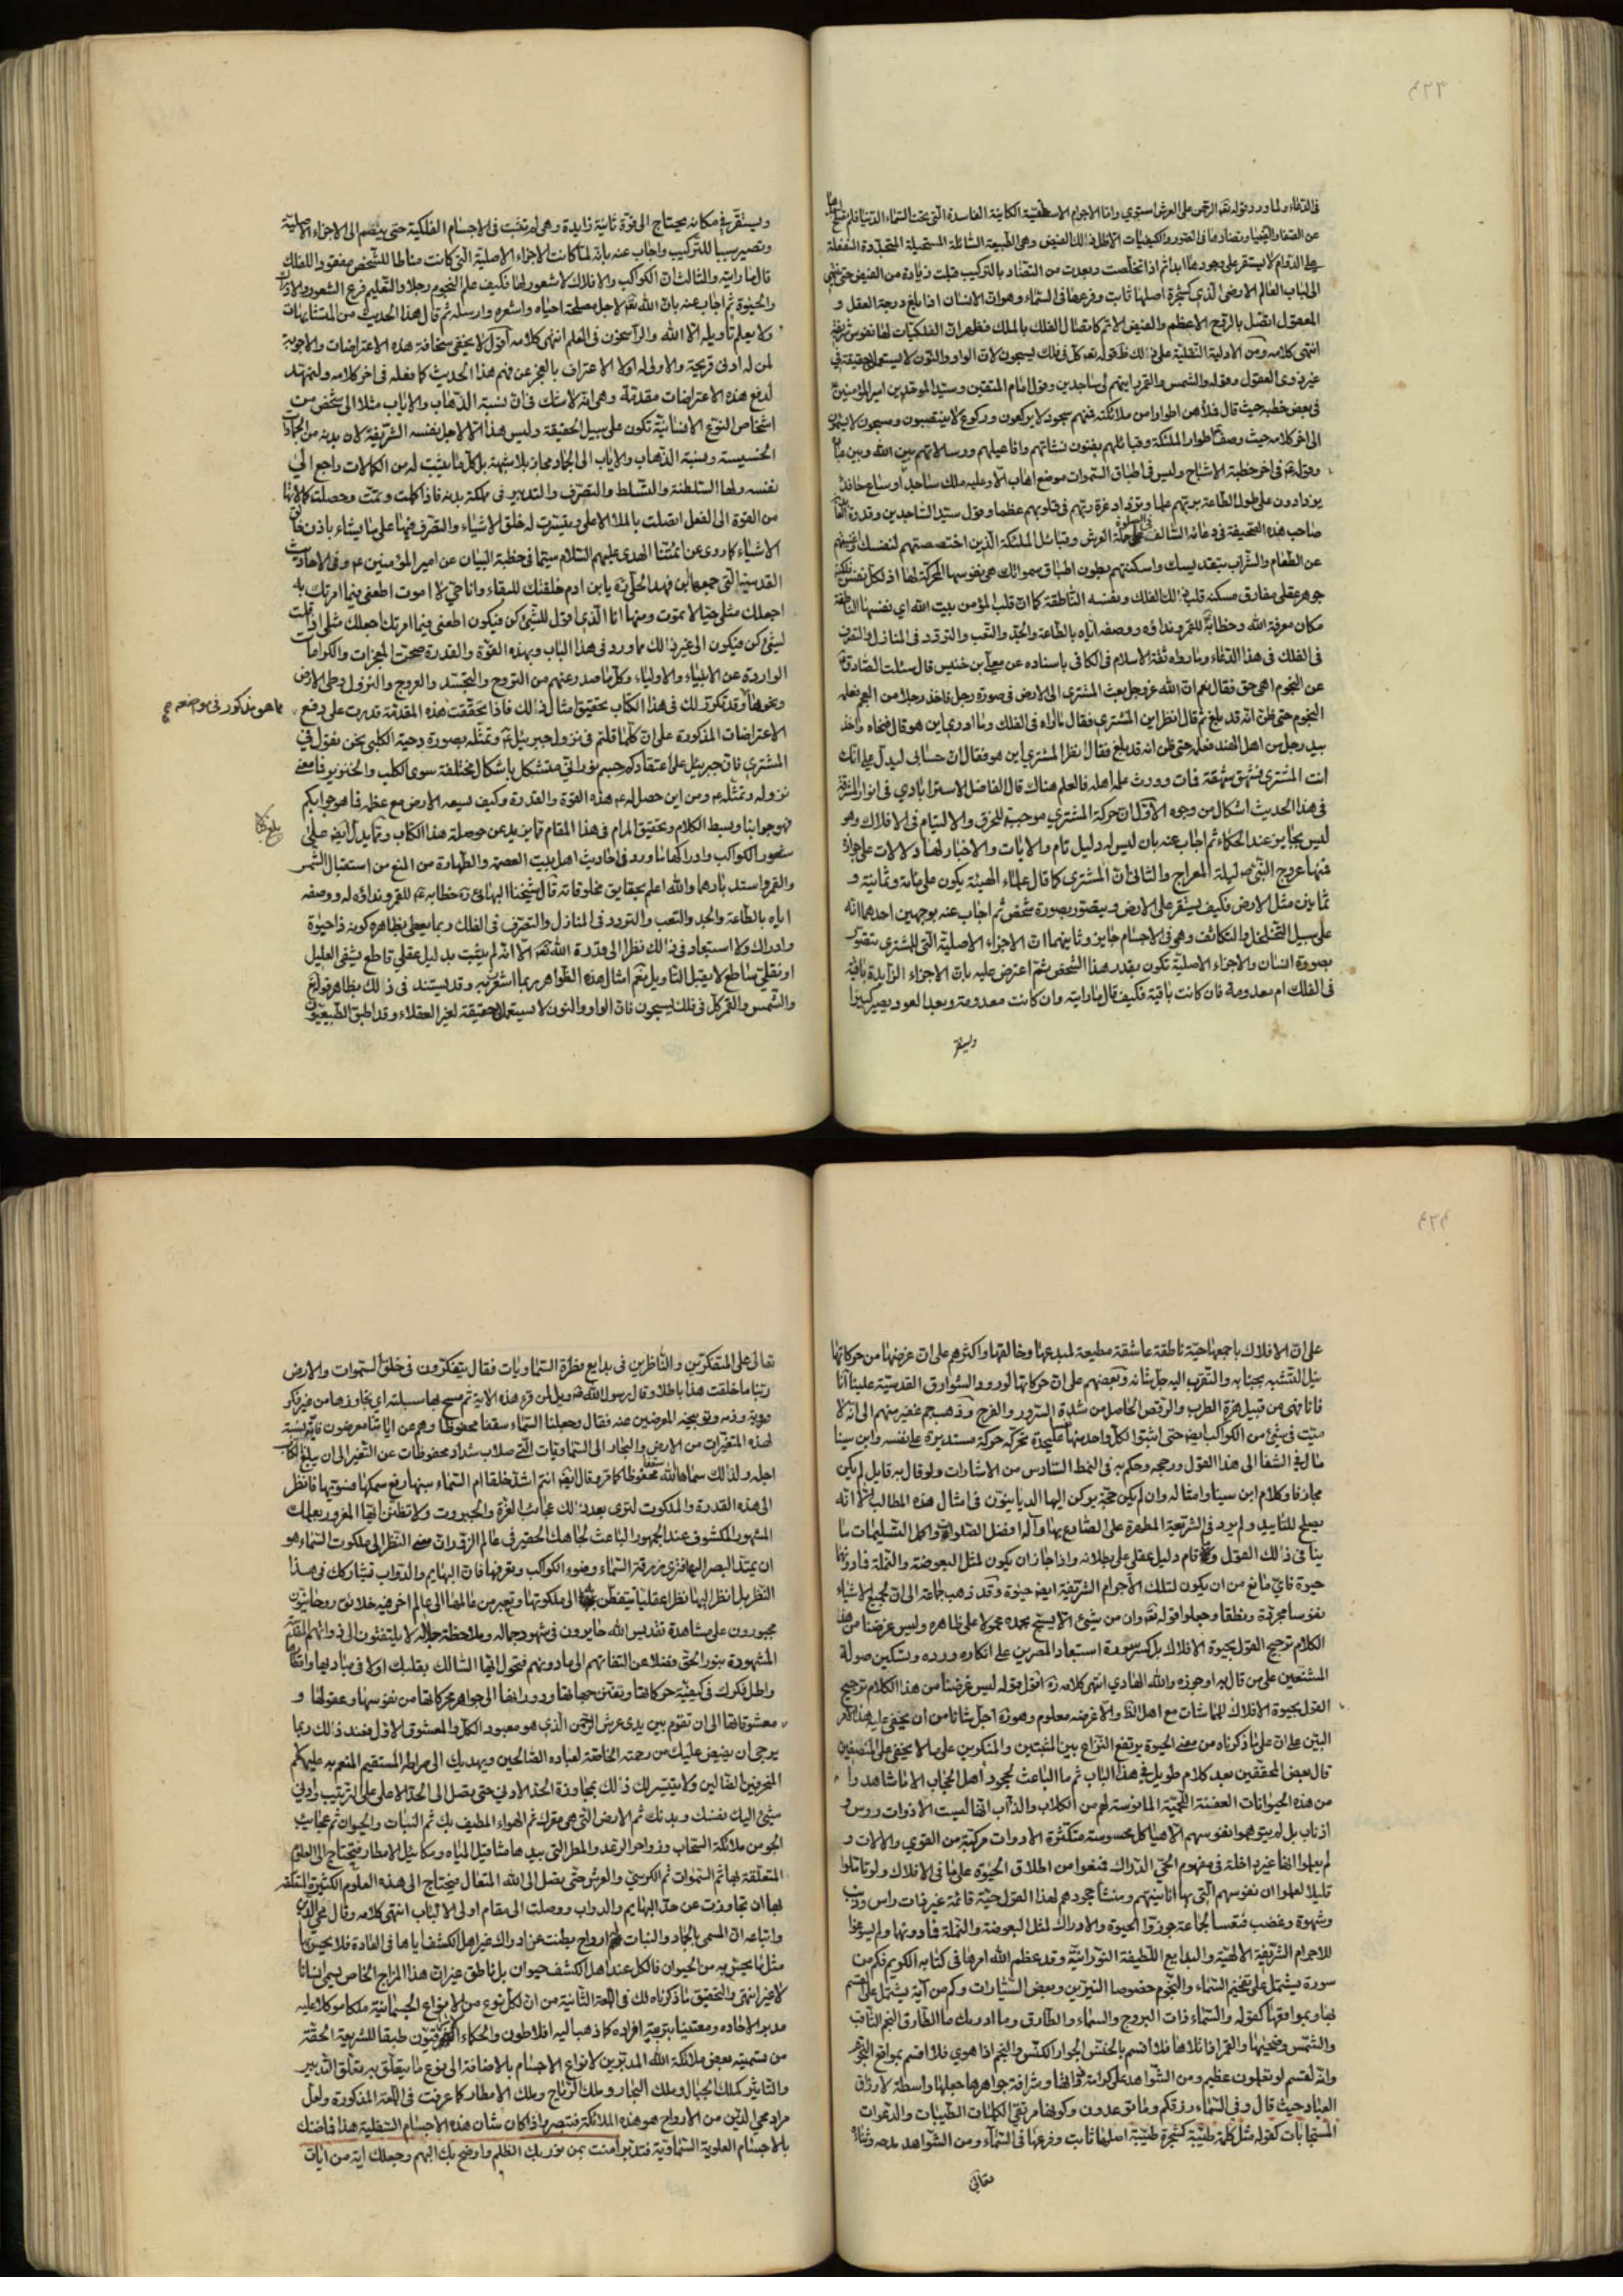 ٤٢٣
في الدعاء ولما ورد وقوله تعالى الرحمن على العرش استوى واما الاجرام الاسطقسية الكاينة الفاسدة التي تحت السماء الدنيا فلم
عن الصفا والضياء وتضاد ما في العنصر والكيفيات الاظلال ذلك الفيض وهي الطبيعة السائلة المستحيلة المتجددة المنفعلة
على الدوام لا يستقر على وجودها ابدا ثم اذا تخلصت وبعدت من التضاد بالتركيب قبلت زيادة من الفيض حتى
الى لباب العالم الارضى الذي كشجرة اصلها ثابت وفرعها في السماء وهو ان الانسان اذا بلغ درجة العقل و
المعقول اتصل بالروح الاعظم والفيض الاتم كاتصال الفلك بالملك فظهر ان الفلكيات لها نفوس شريفة
انتهى كلامه ومن الادلة النقلية على ذلك ظ قوله تعالى كل في فلك يسبحون لان الواو والنون لا يستعمل حقيقة في
غير ذوى العقول وقوله والشمس والقمر رايتهم لي ساجدين وقول امام المتقين وسيد الموحدين امير المؤمنين ع
في بعض خطبه حيث قال فملأهن اطوارا من ملائكته فمنهم سجود لا يركعون وركوع لا ينتصبون ومسبحون لا يسأمون
الى اخر كلامه حيث وصف اطوار الملئكة وقبائلهم بفنون نشاتهم وافاعيلهم ورسالاتهم بين الله وبين عباده
وقوله ع في اخر خطبة الاشباح وليس في اطباق السموات موضع اهاب الا وعليه ملك ساجد او ساع حافد
يزدادون على طول الطاعة بربهم علما ويزداد عزة ربهم في قلوبهم عظما وقول سيد الساجدين وقدوة
صاحب هذه الصحيفة في دعائه السالف في الصلوة على حملة العرش وقبائل الملئكة الذين اختصصتهم لنفسك واغنيتهم
عن الطعام والشراب بتقديسك واسكنتهم بطون اطباق سمواتك هي نفوسها المحركة لها اذ لكل نفس
جوهر عقلى مفارق مسكنه قلب ذلك الفلك ونفسه الناطقة كما ان قلب المؤمن بيت الله اي نفسها الناطقة
مكان معرفة الله وخطابه للقمر ونداؤه ووصفه اياه بالطاعة والجد والتعب والتردد في المنازل والتصرف
في الفلك في هذا الدعاء وما رواه ثقة الاسلام في الكافي باسناده عن معلى بن خنيس قال سئلت الصادق ع
عن النجوم اهي حق فقال نعم ان الله عز وجل بعث المشترى الى الارض في صورة رجل فاخذ رجلا من العجم فعلمه
النجوم حتى ظن انه قد بلغ ثم قال انظر اين المشترى فقال ما اراه في الفلك وما ادرى اين هو قال فنحاه واخذ
بيد رجل من اهل الهند فعلمه حتى ظن انه قد بلغ فقال انظر المشترى اين هو فقال ان حسابى ليدل على انك
انت المشترى فشهق شهقة فمات وورث علمه اهله فالعلم هناك قال الفاضل الاسترابادي في انوار المشرقة
في هذا الحديث اشكال من وجوه الاول ان حركة المشترى موجبة للخرق والالتيام في الافلاك وهو
ليس بجايز عند الحكماء ثم اجاب عنه بان ليس له دليل تام والايات والاخبار لها دلالات على جوازه
منها عروج النبى ص ليلة المعراج والثانى ان المشترى كما قال علماء الهيئة يكون على مائة وثمانية و
ثمانين مثل الارض فكيف يستقر على الارض ويتصور بصورة شخص ثم اجاب عنه بوجهين احدهما انه
على سبيل التخلخل والتكاثف وهي في الاجسام جايز وثانيهما ان الاجزاء الاصلية التي للمشترى تتصور
بصورة انسان والاجزاء الاصلية تكون بقدر هذا الشخص ثم اعترض عليه بان الاجزاء الزايدة باقية
في الفلك ام معدومة فان كانت باقية فكيف قال ما رايته وان كانت معدومة وبعد العود يصير كبيرا
ويستقر
ويستقر في مكانه يحتاج الى قوة ثانية زايدة وهي لم تثبت في الاجسام الفلكية حتى ينضم الى الاجزاء الاصلية
وتصير سببا للتركيب واجاب عنه بانه لما كانت الاجزاء الاصلية التي كانت مناطا للشخص مفقودا للفلك
قال ما رايته والثالث ان الكواكب والافلاك لا شعور لها فكيف علم النجوم رجلا والتعليم فرع الشعور والادراك
والحيوة ثم اجاب عنه بان الله تعالى لاجل مصلحة احياه واشعره وارسله ثم قال هذا الحديث من المتشابهات
ولا يعلم تأويله الا الله والراسخون في العلم انتهى كلامه اقول لا يخفى سخافة هذه الاعتراضات والاجوبة
لمن له ادنى قريحة والاولى له اولا الاعتراف بالعجز عن فهم هذا الحديث كما فعله في اخر كلامه ولنمهد
لدفع هذه الاعتراضات مقدمة وهي انه لا شك في ان نسبة الذهاب والاياب مثلا الى شخص من
اشخاص النوع الانسانية تكون على سبيل الحقيقة وليس هذا الا لاجل نفسه الشريفة لان بدنه من الجمادات
الخسيسة ونسبة الذهاب والاياب الى الجماد مجاز بلا شبهة بل كل ما يثبت له من الكمالات راجع الى
نفسه ولها السلطنة والتسلط والتصرف والتدبير في مملكة بدنه فاذا كملت وتمت وحصلت كمالاتها
من القوة الى الفعل اتصلت بالملأ الاعلى وتيسرت له خلق الاشياء والتصرف فيها على ما يشاء باذن خالق
الاشياء كما روى عن ائمتنا الهدى عليهم السلام سيما في خطبة البيان عن امير المؤمنين ع وفي الاحاديث
القدسية التي جمعها ابن فهد الحلى ره يا بن ادم خلقتك للبقاء وانا حي لا اموت اطعنى فيما امرتك به
اجعلك مثلى حيا لا تموت ومنها انا الذى اقول للشئ كن فيكون اطعنى فيما امرتك اجعلك مثلى اذا قلت
لشئ كن فيكون الى غير ذلك مما ورد في هذا الباب وبهذه القوة والقدرة صحت المعجزات والكرامات
الواردة عن الانبياء والاولياء وكل ما صدر عنهم من التروح والتجسد والعروج والنزول وطى الارض
ونحوها وقد تكرر لك في هذا الكتاب تحقيق امثال ذلك فاذا تحققت هذه المقدمة قدرت على دفع
مما هو مذكور في موضعه صح
الاعتراضات المذكورة على ان كلما قلتم في نزول جبرئيل ع وتمثله بصورة دحية الكلبى نحن نقول في
المشترى فان جبرئيل على اعتقادكم جسم نوراني متشكل باشكال مختلفة سوى الكلب والخنزير فما معنى
نزوله وتمثله ومن اين حصل له هذه القوة والقدرة وكيف يسعه الارض مع عظمه فما هو جوابكم
فهو جوابنا وبسط الكلام وتحقيق المرام في هذا المقام مما يزيد عن حوصلة هذا الكتاب ومما يدل ايضا على
شعور الكواكب وادراكها ما ورد في احاديث اهل بيت العصمة والطهارة من المنع من استقبال الشمس
والقمر واستدبارهما والله اعلم بحقايق مخلوقاته قال شيخنا البهائى ره خطابه ع للقمر ونداؤه له ووصفه
اياه بالطاعة والجد والتعب والتردد في المنازل والتصرف في الفلك ربما يعطى بظاهره كونه ذا حيوة
وادراك ولا استبعاد في ذلك نظرا الى قدرة الله تعالى الا انه لم يثبت بدليل عقلى قاطع يشفى العليل
او نقلى ساطع لا يقبل التاويل نعم امثال هذه الظواهر ربما اشعر به وقد يستند في ذلك بظاهر قوله تعالى
والشمس والقمر كل في فلك يسبحون فان الواو والنون لا يستعمل حقيقة لغير العقلاء وقد اطبق الطبيعيون
٤٢٤
على ان الافلاك باجمعها حية ناطقة عاشقة مطيعة لمبدعها وخالقها واكثرهم على ان غرضها من حركاتها
نيل التشبه بجنابه والتقرب اليه جل شانه وبعضهم على ان حركاتها لورود الشوارق القدسية عليها انا
فانا فهى من قبيل هزة الطرب والرقص الحاصل من شدة السرور والفرح وذهب جم غفير منهم الى انه لا
ميت في شئ من الكواكب ايضا حتى اثبتوا لكل واحد منها نفسا على حدة تحركه حركة مستديرة على نفسه وابن سينا
مال في الشفا الى هذا القول ورجحه وحكم به في النمط السادس من الاشارات ولو قال به قايل لم يكن
مجازفا وكلام ابن سينا وامثاله وان لم يكن حجة يركن اليها الديانيون في امثال هذه المطالب الا انه
يصلح للتاييد ولم يرد في الشريعة المطهرة على الصادع بها وآله افضل الصلوات واكمل التسليمات ما
ينافى ذلك القول ولا قام دليل عقلى على بطلانه واذا جاز ان يكون لمثل البعوضة والنملة فما دونها
حيوة فاى مانع من ان يكون لتلك الاجرام الشريفة ايضا حيوة وقد ذهب جماعة الى ان لجميع الاشياء
نفوسا مجردة ونطقا وجعلوا قوله تعالى وان من شئ الا يسبح بحمده محمولا على ظاهره وليس غرضنا من هذا
الكلام ترجيح القول بحيوة الافلاك بل كسر سورة استبعاد المصرين على انكاره ورده وتسكين صولة
المشنعين على من قال به او جوزه والله الهادي انتهى كلامه ره اقول قوله ليس غرضنا من هذا الكلام ترجيح
القول بحيوة الافلاك للمماشات مع اهل الظاهر والا غرضه معلوم وهو ره اجل شانا من ان يخفى عليه هذا الامر
البين على ان على ما ذكرناه من معنى الحيوة يرتفع النزاع بين المثبتين والمنكرين على ما لا يخفى على المنصفين
قال بعض المحققين بعد كلام طويل في هذا الباب ثم ما الباعث لجحود اهل الحجاب الا ما شاهدوا
من هذه الحيوانات العفنة اللحمية المانوسة لهم من الكلاب والذآب انها ليست الا ذوات رؤس و
اذناب بل لم يتوهموا نفوسهم الا هياكل محسوسة متكثرة الادوات مركبة من القوى والالات و
لم يعلموا انها غير داخلة في مفهوم الحي الدراك فمنعوا من اطلاق الحيوة على ما في الافلاك ولو تاملوا
قليلا لعلموا ان نفوسهم التي بها انانيتهم ومنشأ جحودهم لهذا القول حية قائمة غير ذات راس وذنب
وشهوة وغضب فتعسا لجماعة جوزوا الحيوة والادراك لمثل البعوضة والنملة فما دونها ولم يسوغوا
للاجرام الشريفة الالهية والبدايع اللطيفة النورانية وقد عظم الله امرها في كتابه الكريم فكم من
سورة يشتمل على تفخيم السماء والنجوم خصوصا النيرين وبعض السيارات وكم من آية يشتمل على القسم
بها وبمواقعها كقوله والسماء ذات البروج والسماء والطارق وما ادريك ما الطارق النجم الثاقب
والشمس وضحيها والقمر اذا تلاها فلا اقسم بالخنس الجوار الكنس والنجم اذا هوى فلا اقسم بمواقع النجوم
وانه لقسم لو تعلمون عظيم ومن الشواهد على كرامة ذواتها وشرافة جواهرها جعلها واسطة لارزاق
العباد حيث قال وفي السماء رزقكم وما توعدون وكونها مرتقى الكلمات الطيبات والدعوات
المستجابات كقوله مثل كلمة طيبة كشجرة طيبة اصلها ثابت وفرعها في السماء ومن الشواهد مدحه وثناؤه
تعالى
تعالى على المتفكرين والناظرين في بدايع فطرة السماويات فقال يتفكرون في خلق السموات والارض
ربنا ما خلقت هذا باطلا وقال رسول الله ص ويل لمن قرء هذه الاية ثم مسح بها سبلته اي تجاوزها من غير فكر
وروية وذمه وتوبيخه المعرضين عنه فقال وجعلنا السماء سقفا محفوظا وهم عن اياتنا معرضون فاى نسبة
لهذه المتغيرات من الارض والبحار الى السماويات التي صلاب شداد محفوظات عن التغير الى ان يبلغ الكتاب
اجله ولذلك سماها الله سقفا محفوظا كما مر وقال ايضا ءانتم اشد خلقا ام السماء بنيها رفع سمكها فسويها فانظر
الى هذه القدرة والملكوت لترى بعد ذلك عجائب العزة والجبروت ولا تظنن ايها المغرور بعلمك
المشهور المكشوف عند الجمهور الباعث لجاهك الحقير في عالم الزور ان معنى النظر الى ملكوت السماء هو
ان يمتد البصر اليها فترى زرقة السماء وضوء الكواكب وتفرقها فان البهايم والدواب تشاركك في هذا
النظر بل انظر اليها نظرا عقليا يتفطن الى ملكوتها وتعبر من عالمها الى عالم اخر فيه خلائق روحانيون
مجبورون على مشاهدة تقديس الله حايرون في شهود جماله وملاحظة جلاله لا يلتفتون الى ذواتهم المقدسة
المشهودة بنور الحق فضلا عن التفاتهم الى ما دونهم فتحول ايها السالك بقلبك اولا في مباديها واقطارها
واطل فكرك في كيفية حركاتها وتفنن جهاتها ودوراتها الى جواهر محركاتها من نفوسها وعقولها و
معشوقاتها الى ان تقوم بين يدى عرش الرحمن الذى هو معبود الكل والمعشوق الاول فعند ذلك ربما
يرجى ان يفيض عليك من رحمته الخاصة لعباده الصالحين ويهديك الى صراطه المستقيم المنعم به عليهم
المنحرفين الضالين ولا يتيسر لك ذلك بمجاوزة الحد الادنى حتى تصل الى الحد الاعلى على الترتيب وادنى
شئ اليك نفسك وبدنك ثم الارض التي هي مقرك ثم الهواء المطيف بك ثم النبات والحيوان ثم عجايب
الجو من ملائكة السحاب وزواجر الرعد والمطر التي بيدها مثاقيل المياه ومكائيل الامطار فيحتاج الى العلوم
المتعلقة بها ثم السموات ثم الكرسي والعرش حتى يصل الى الله المتعال يحتاج الى هذه العلوم الكثيرة المتعلقة
بها ان تجاوزت عن حد البهايم والدواب ووصلت الى مقام اولى الالباب انتهى كلامه وقال محى الدين
واتباعه ان المسمى بالجماد والنبات لهم ارواح بطنت عن ادراك غير اهل الكشف اياها في العادة فلا يحس بها
مثل ما يحس به من الحيوان فالكل عند اهل الكشف حيوان بل ناطق غير ان هذا المزاج الخاص يسمى انسانا
لا غير انتهى والتحقيق ما ذكرناه لك في اللمعة الثانية من ان لكل نوع من الانواع الجسمانية ملكا موكلا عليه
مدبر الاحاده ومعتنيا بتربية افراده كما ذهب اليه افلاطون والحكماء الاشراقيون طبقا للشريعة الحقة
من تسمية بعض ملائكة الله المدبرين لانواع الاجسام بالاضافة الى نوع ما يتعلق به تعلق التدبير
والتاثير كملك الجبال وملك البحار وملك الرياح وملك الامطار كما عرفت في اللمعة المذكورة ولعل
مراد محى الدين من الارواح هو هذه الملائكة فتبصر واذا كان شان هذه الاجسام السفلية هذا فما ظنك
بالاجسام العلوية السماوية فتدبر امنت بمن نور بك الظلم واوضح بك البهم وجعلك اية من ايات